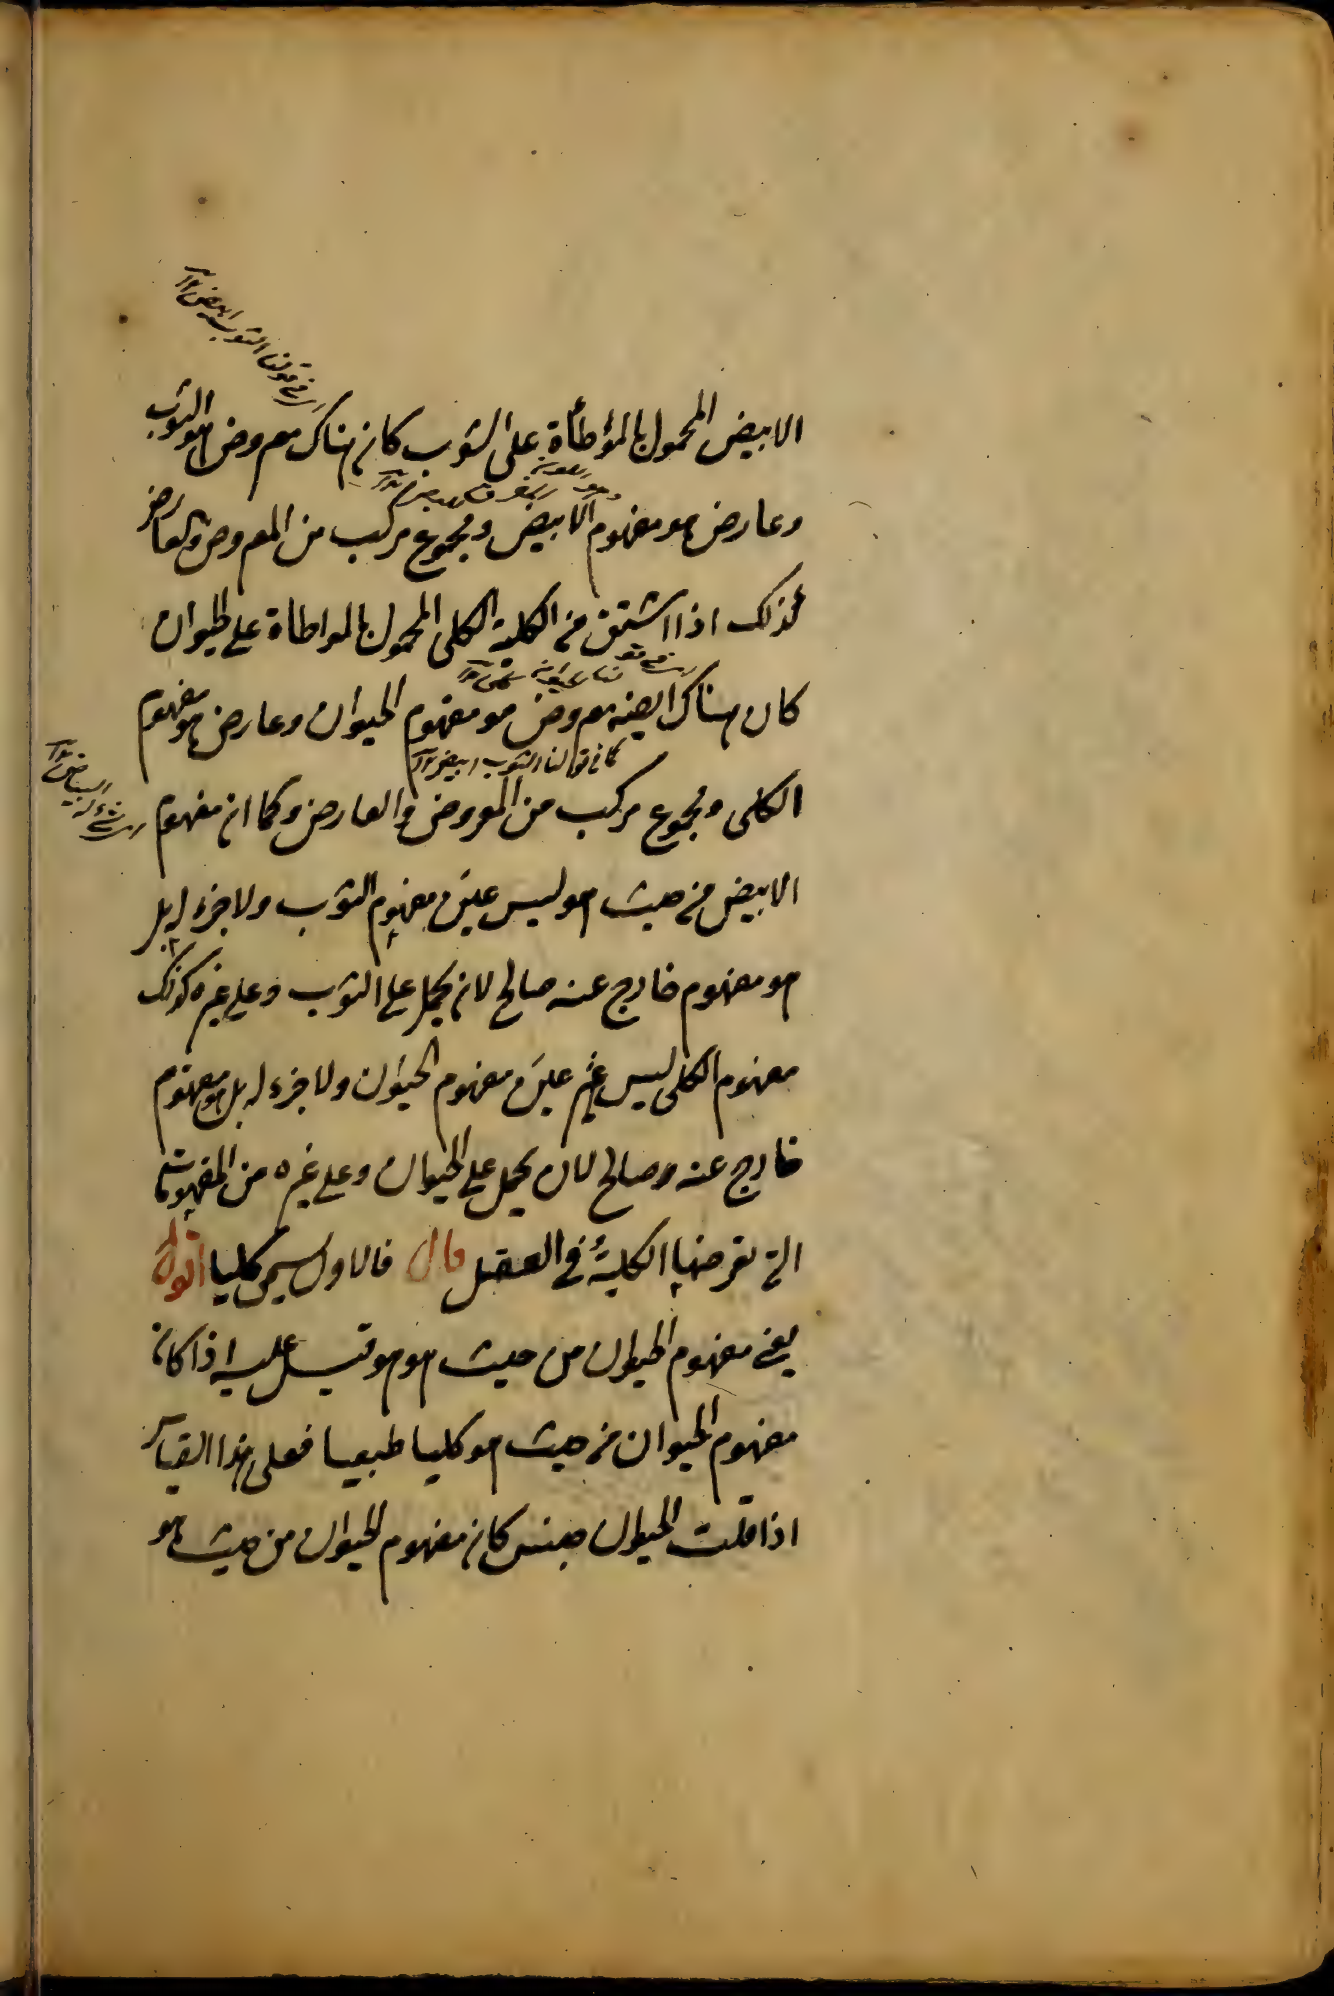 الابيض المحمول بالمؤاطأة على الثوب كان هناك معروض هو الثوب
وعارض هو مفهوم الابيض ومجموع مركب من المعروض والعارض
كذلك اذا اشتق من الكلية الكلى المحمول بالمواطاة على الحيوان
كان هناك ايضا معروض هو مفهوم الحيوان وعارض هو مفهوم
كما فى قولنا الثوب ابيض
الكلى ومجموع مركب من المعروض والعارض وكما ان مفهوم
الابيض من حيث هو ليس عين مفهوم الثوب ولا جزء له بل
هو مفهوم خارج عنه صالح لان يحمل على الثوب وعلى غيره كذلك
مفهوم الكلى ليس عين مفهوم الحيوان ولا جزء له بل هو مفهوم
خارج عنه وصالح لان يحمل على الحيوان وعلى غيره من المفهومات
التى تعرضها الكلية فى العقل قال فالاول يسمى كليا اقول
يعنى مفهوم الحيوان من حيث هو هو قيل عليه اذا كان
مفهوم الحيوان من حيث هو كليا طبعيا فعلى هذا القياس
اذا قلت الحيوان جنس كان مفهوم الحيوان من حيث هو